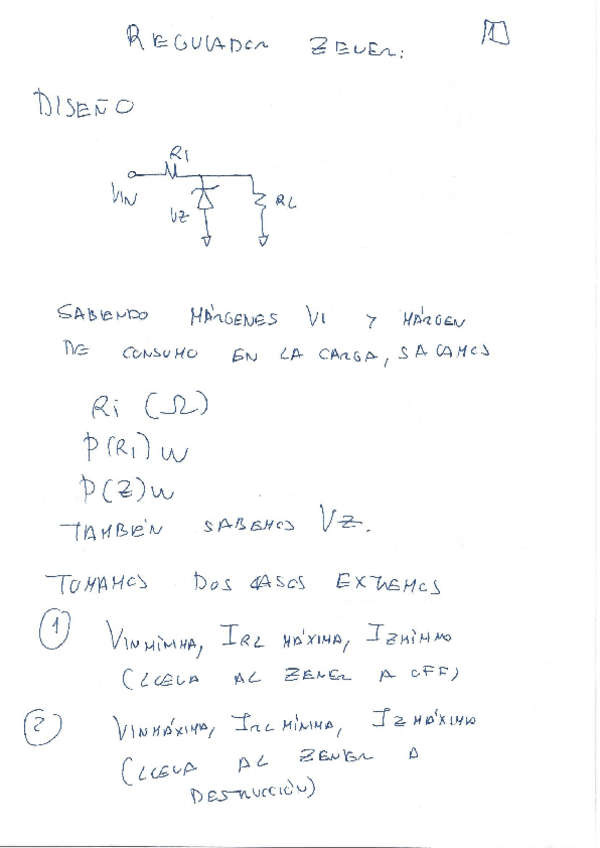 REGULADOR ZENER:
1
DISEÑO
R1
VIN
VZ
RL
SABIENDO MÁRGENES VI Y MÁRGEN
DE CONSUMO EN LA CARGA, SACAMOS
Ri (Ω)
P(R1) W
P(Z) W
TAMBIÉN SABEMOS VZ.
TOMAMOS DOS CASOS EXTREMOS
1 VINMÍNIMA, IRL MÁXIMA, IZMÍNIMO
(LLEVA AL ZENER A OFF)
2 VINMÁXIMA, IRL MÍNIMA, IZ MÁXIMO
(LLEVA AL ZENER A
DESTRUCCIÓN)